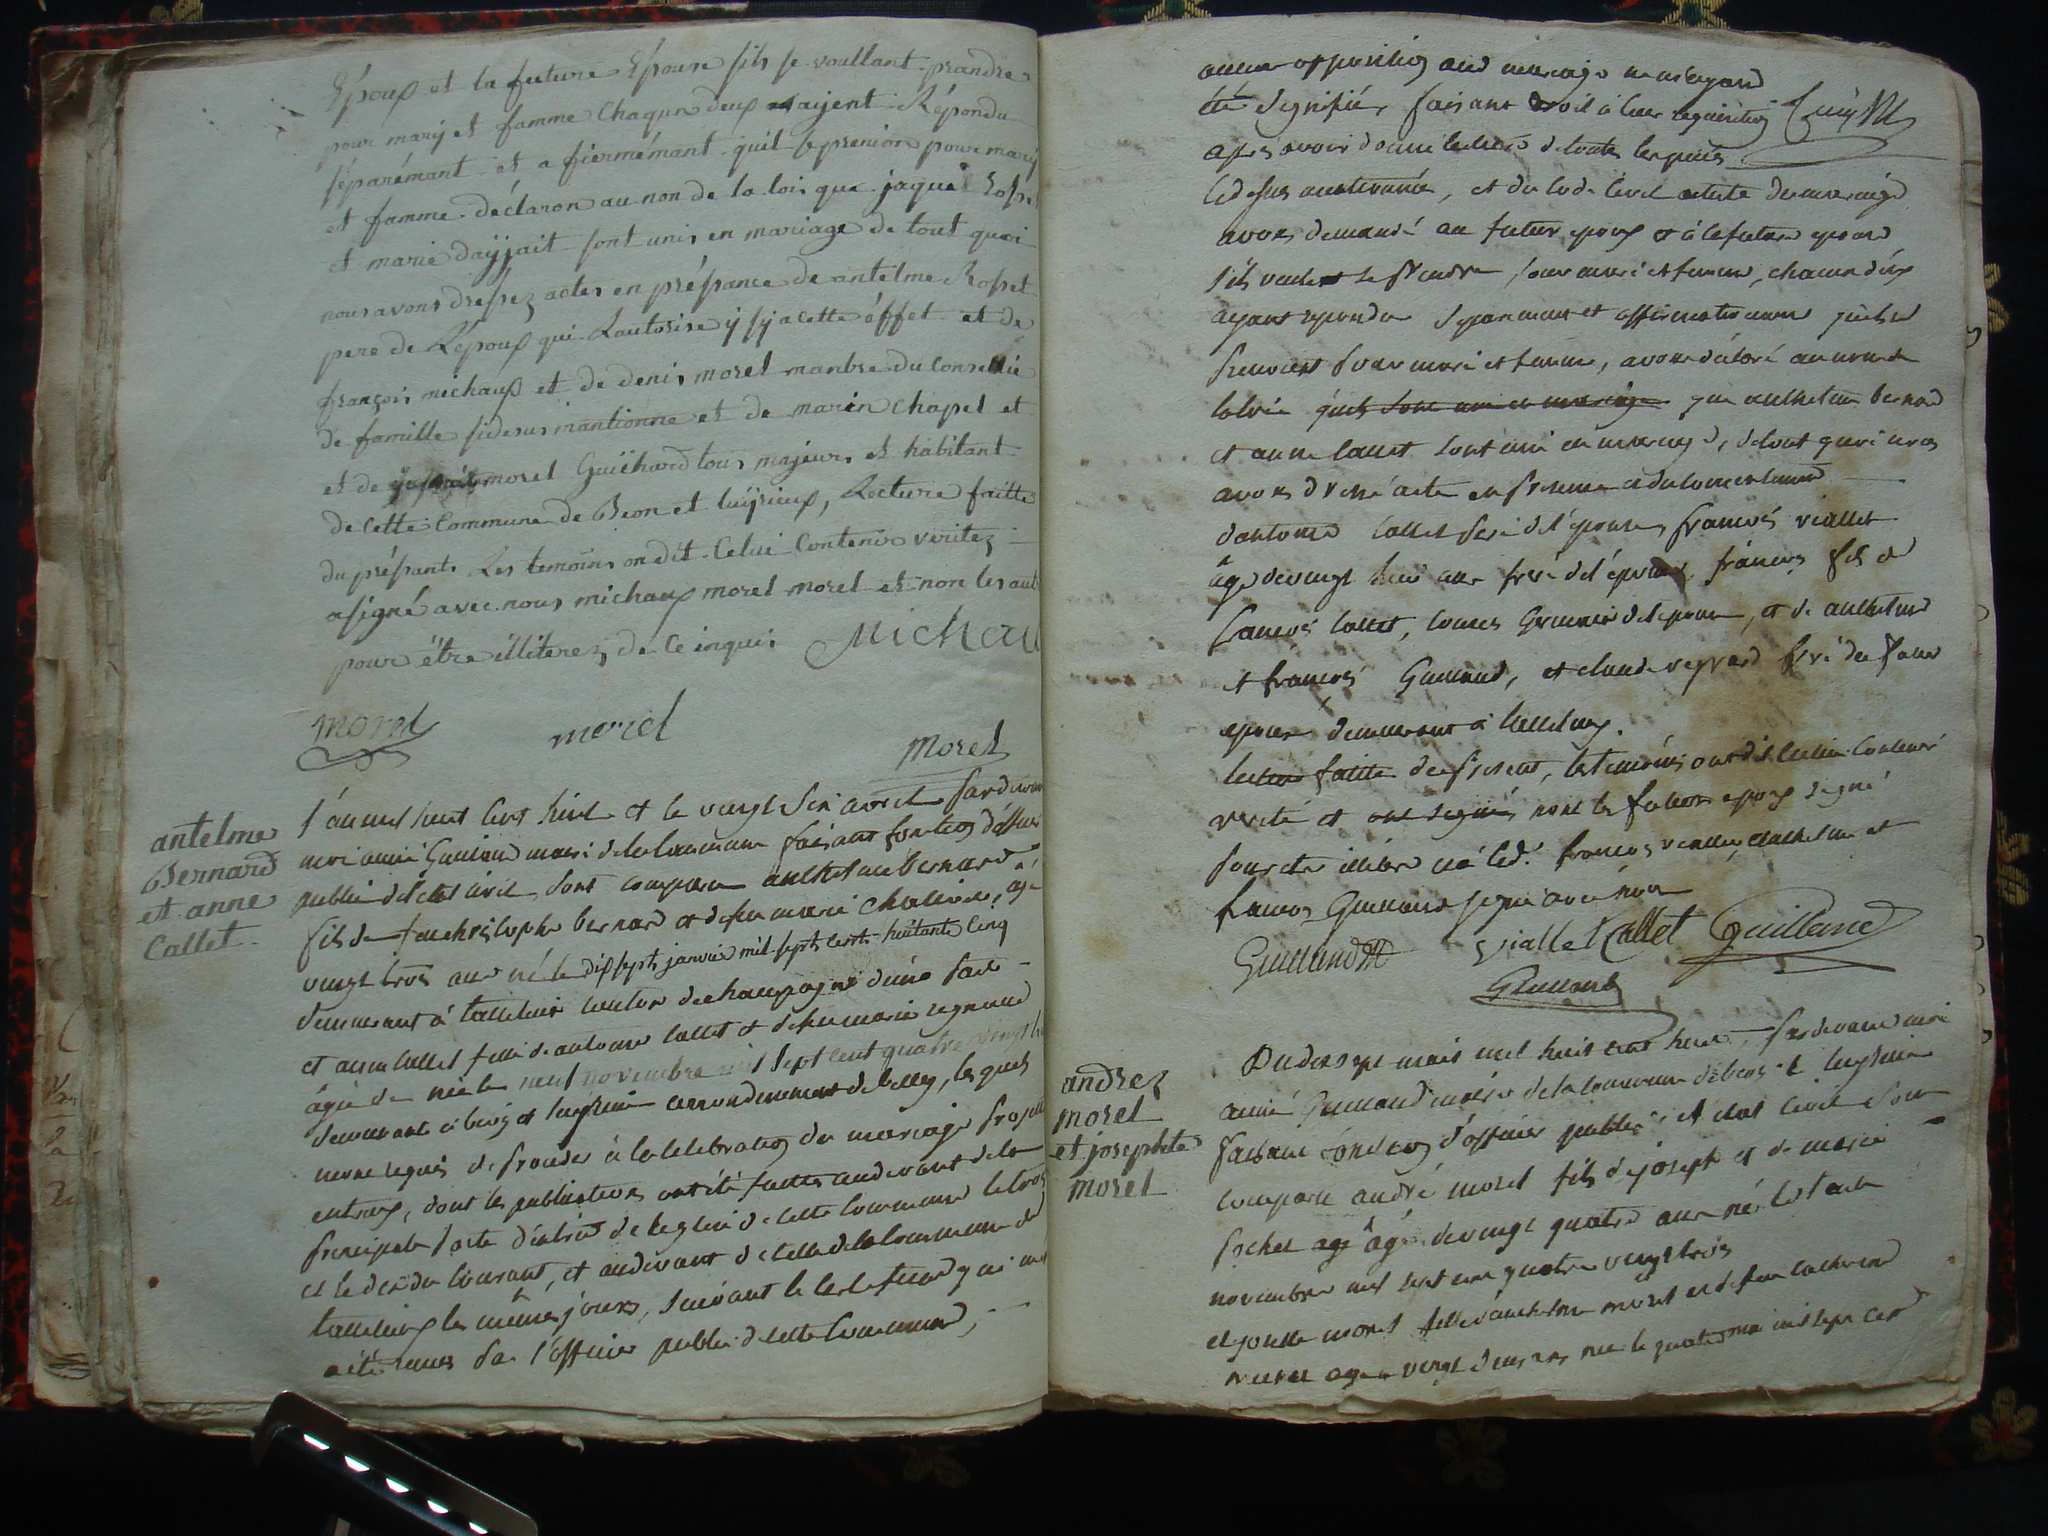 Époux et la future Épouse sils se voullant prandre
pour mary et famme chaqun deux ayent Répondu
séparémant et afiermémant quil se prenion pour mary
et famme déclaron au non de la loi que jaque Rosset
et marie dayjait sont unis en mariage de tout quoi
nous avons dressez actes en préssance de antelme Rosset
pere de Lépoux qui Lautorise à cette éffet et de
françois michaux et de denis morel manbre du conseille
de famille sidesus mantionne et de marin chapel et
et de morel Guichard tous majeurs et habitant
de cette Commune de Beon et luÿrieux, Lecture faitte
du préssant Les temoins on dit Celui Contenir veritez
asigné avec nous michaux morel morel et non les aut
pour étre illiterez de ce inquis Michau
morel morel Morel
antelme
Bernard
et anne
Callet
l'an mil huit cent huit et le vingt six avril pardevant
nous aimé Guilland maire de la commune faisant fonction d'officier
public de l'etat civil sont comparu anthelme Bernard
fils de feu christophe bernard et de feu marie agé
vingt trois ans né le dix sept janvier mil sept cent huitante cinq
demeurant à canton de champagne d'une part
et anne callet fille de antoine callet et de feu marie
âgée de née le neuf novembre mil sept cent quatre vingt
demeurant à béon et luyrieu arrondissement de belley, les quels
nous requis de proceder à la celebration du mariage projeté
entreux, dont les publications ont été faites au devant de la
principale porte d'entrée de l'eglise de cette commune le trois
et le dix du courant, et au devant de celle de la commune de
les mêmes jours, suivant le certificat qui
a été remis par l'officier public de cette commune,
aucune opposition aud mariage ne m'ayant
été signifiée faisant droit à leur requisition
apres avoir donné lecture de toutes les pieces
ci dessus mentionnée, et du code civil du mariage
avons demandé au futur epoux et à la future epouse
s'ils veulent se prendre pour mari et femme, chacun d'eux
ayant repondu separement et affirmativement qu'ils
prennent pour mari et femme, avons déclaré au nom de
la loi qu'ils sont unis en mariage que anthelme bernard
et anne callet sont uni en mariage, de tout quoi nous
avons dressé acte en presence et du consentement
d'antoine callet pere de l'epouse, francois viallet
âge de vingt huit ans frere de l'epoux, francois fils de
francois callet, cousin germain de l'epouse, et de anthelme
et francois Guilland, et claude
epoux demeurant à
lecture faitte du present, les temoins ont dit celui contenir
verité et ont signés non les futurs epoux signé
pour etre illitere francois viallet, anthelme et
francois Guilland signé avec nous
Guilland viallet Callet Guilland
Guilland
andrez
morel
et josephte
morel
Du dix sept mai mil huit cent huit, pardevant nous
aimé Guilland maire de la commune de béon et luyrieu
faisant fonction d'officier public de l'etat civil sont
comparu andré morel fils de joseph et de marie
âgé de vingt quatre ans né le
novembre mil sept cent quatre vingt trois
et josette morel fille d'anthelme morel et de feu catherine
agée vingt deux ans née le quatre mai mil sept cent